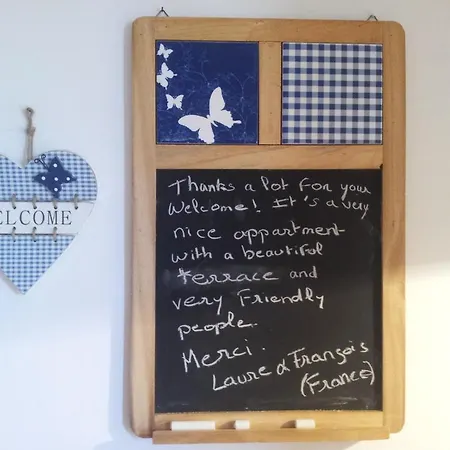 WELCOME
Thanks a lot for your
welcome! It's a very
nice appartment
with a beautiful
terrace and
very Friendly
people.
Merci.
Laure & François
(France)